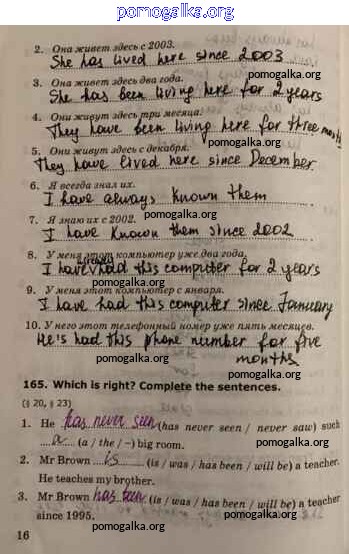 pomogalka.org
2. Она живет здесь с 2003.
She has lived here since 2003
pomogalka.org
3. Она живет здесь два года.
She has been living here for 2 years
pomogalka.org
4. Они живут здесь три месяца.
They have been living here for three month
pomogalka.org
5. Они живут здесь с декабря.
They have lived here since December
pomogalka.org
6. Я всегда знал их.
I have always known them
pomogalka.org
7. Я знаю их с 2002.
I have known them since 2002
pomogalka.org
8. У меня этот компьютер уже два года.
already
I have had this computer for 2 years
pomogalka.org
9. У меня этот компьютер с января.
I have had this computer since January
pomogalka.org
10. У него этот телефонный номер уже пять месяцев.
He's had this phone number for five
months
pomogalka.org
165. Which is right? Complete the sentences.
(§ 20, § 23)
pomogalka.org
1. He has never seen (has never seen / never saw) such
a (a / the / –) big room.
pomogalka.org
2. Mr Brown is (is / was / has been / will be) a teacher.
He teaches my brother.
pomogalka.org
3. Mr Brown has been (is / was / has been / will be) a teacher
since 1995.
pomogalka.org
16
pomogalka.org